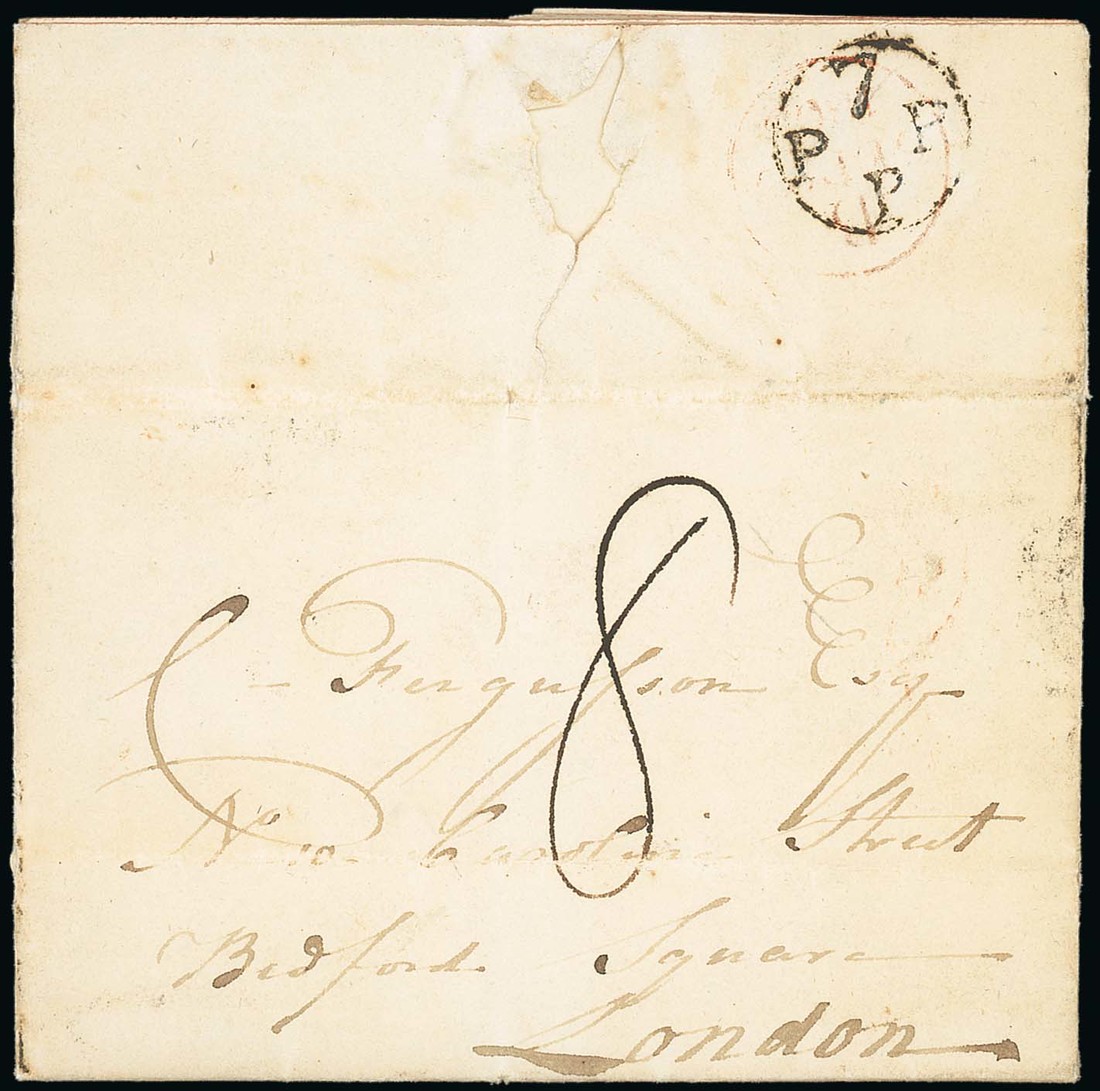 7
P P
P
8
C - Fergusson Esq
No 10 Caroline Street
Bedford Square
London